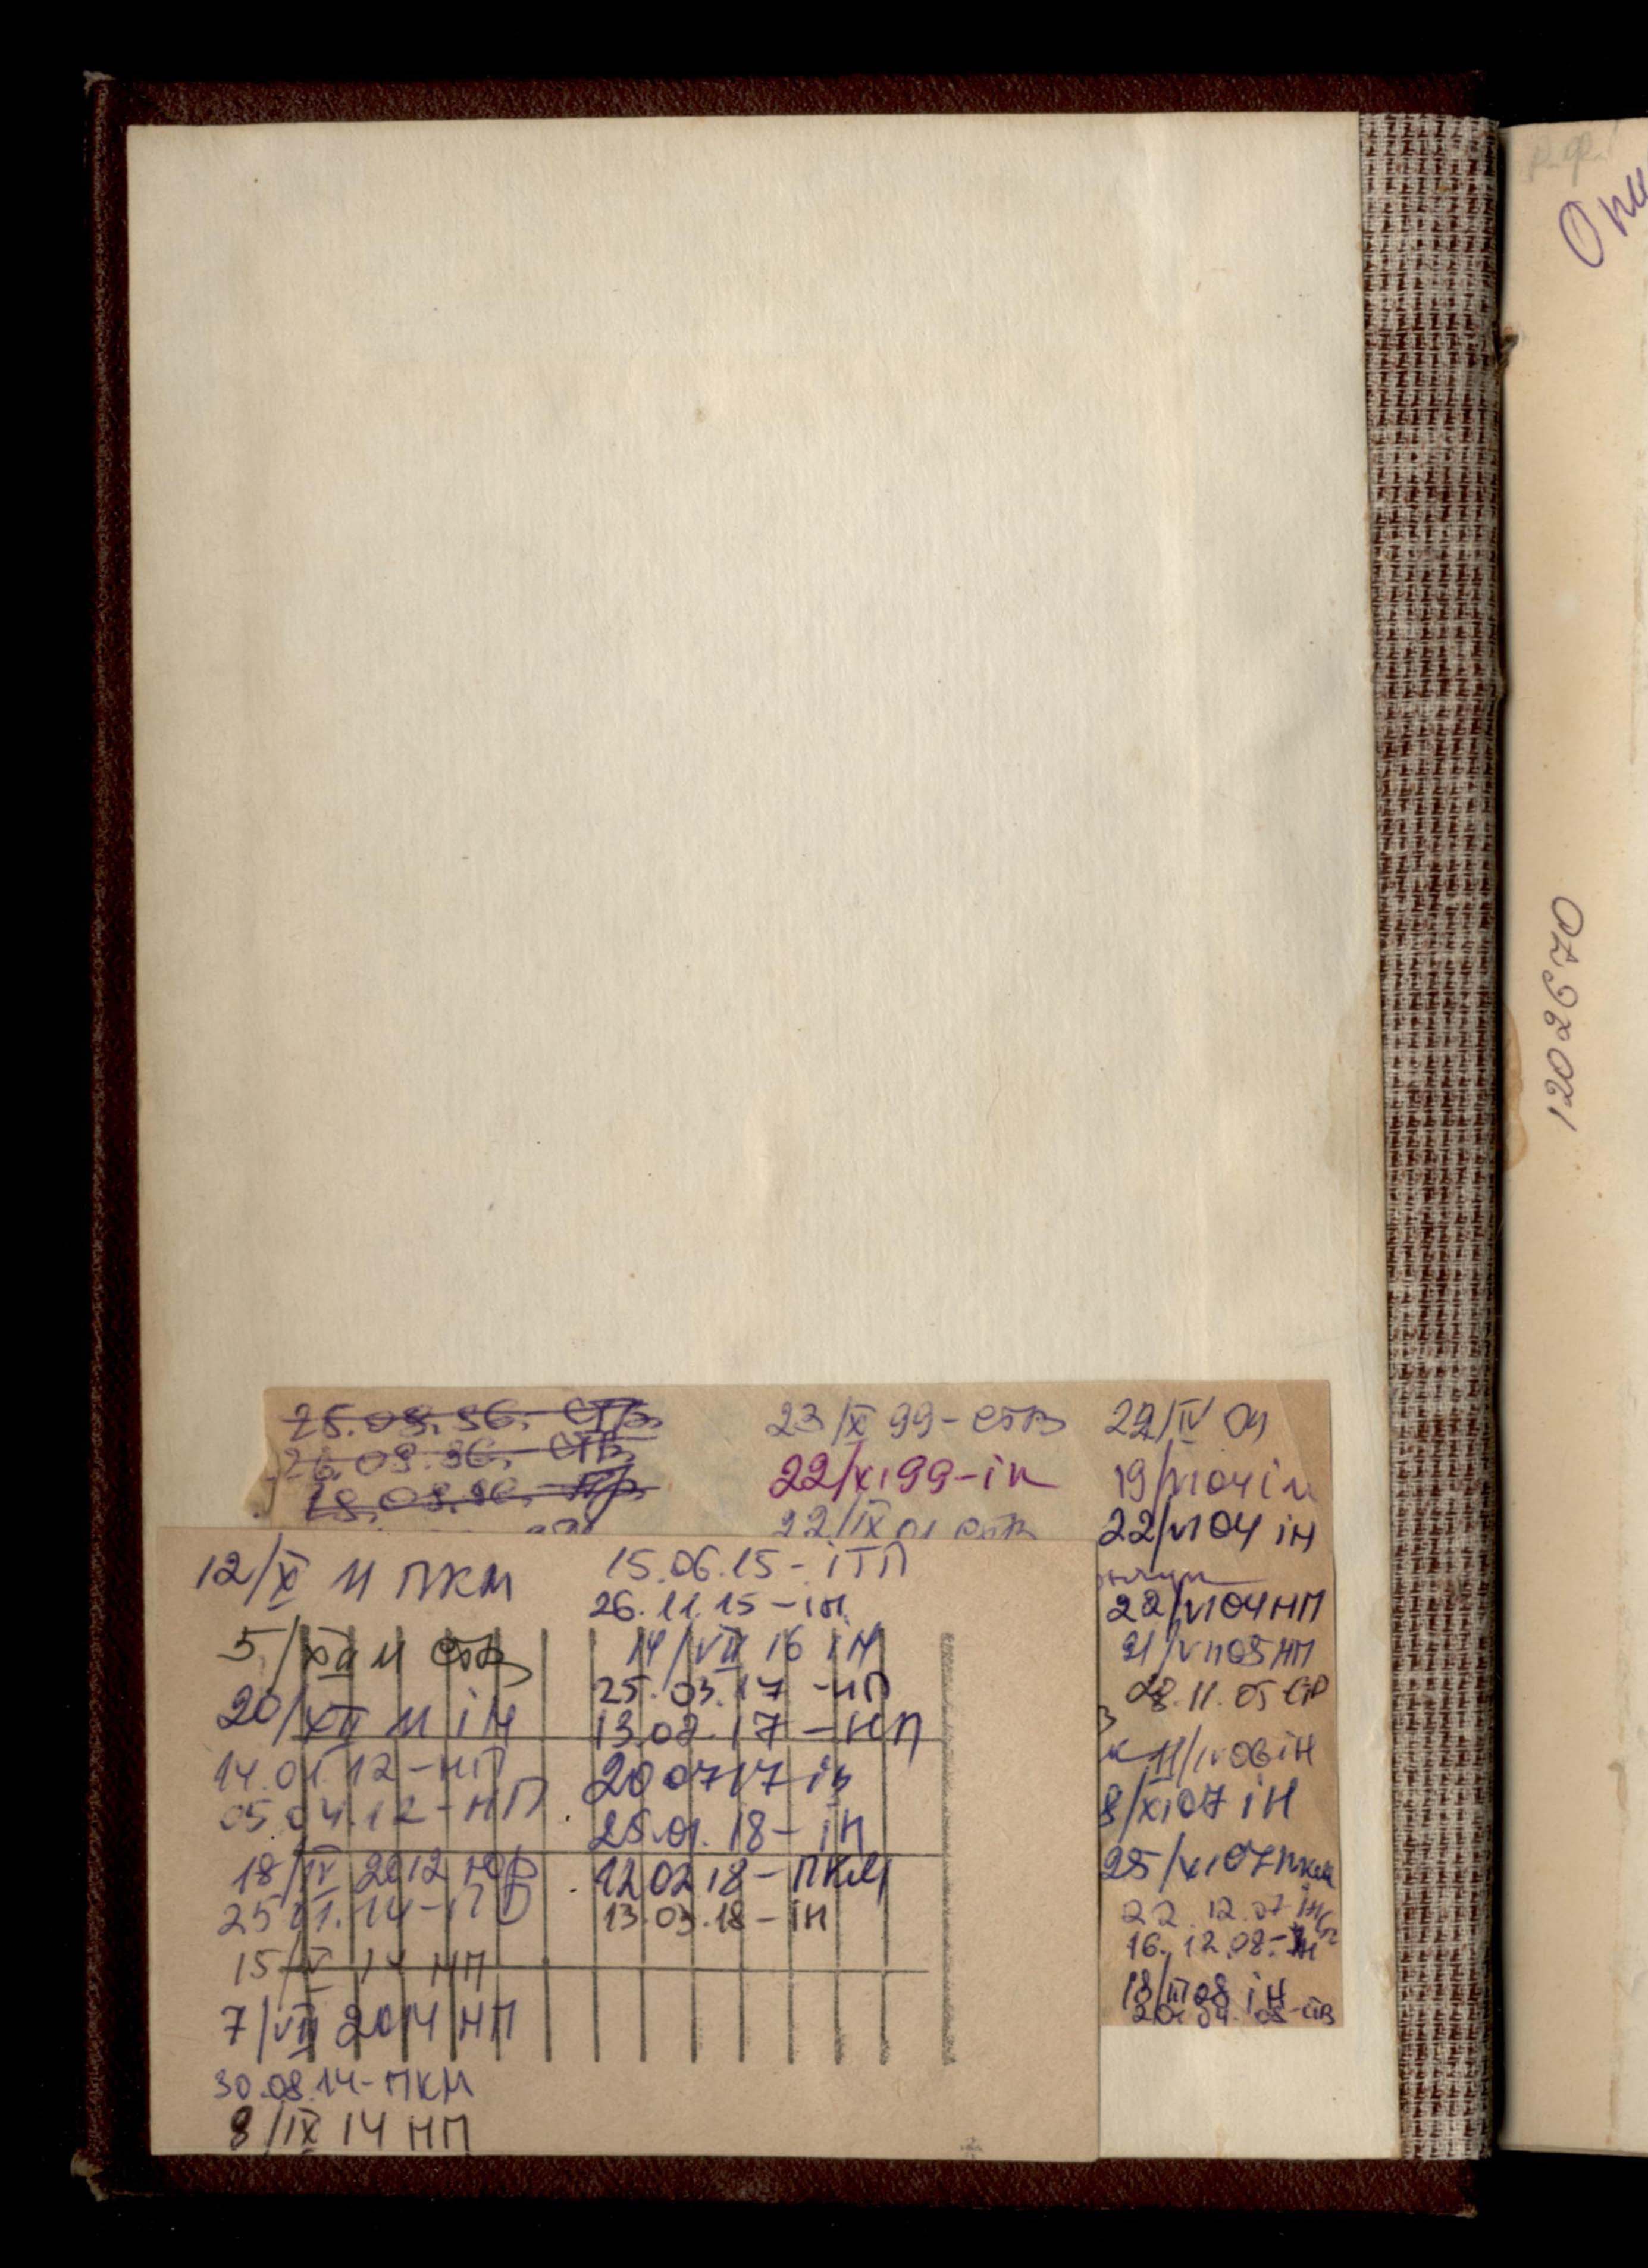 25.03.96. СТВ.
26.03.96. СТВ.
18.03.96.
23/X 99 - ств
22/XI 99 - ін
22/IX 01 ств
22/IV 04
19/VI 04 ін
22/VI 04 ін
22/VI 04 НП
21/VII 05 НП
28.11.05
11/IV 06 ін
8/XI 07 ІН
25/XI 07 пкм
22.12.07
16.12.08
18/III 08 ін
12/X 11 ПКМ
5/XII 11 ств
20/XII 11 ІН
14.01.12 - НП
05.04.12 - НП
18/IV 2012 юр
25.01.14 -
15/V 14 НП
7/VII 2014 НП
30.08.14 - ПКМ
8/IX 14 НП
15.06.15 - ІТП
26.11.15 - ІН.
14/VII 16 ІН
25.03.17 - НП
13.02.17 - НП
20 07 17 ін
25.01.18 - ІН
12 02 18 - ПКМ
13.03.18 - ІН
1202670